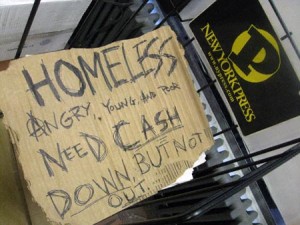 HOMELESS
ANGRY, YOUNG, AND POOR
NEED CASH
DOWN, BUT NOT
OUT.
NEW YORK PRESS